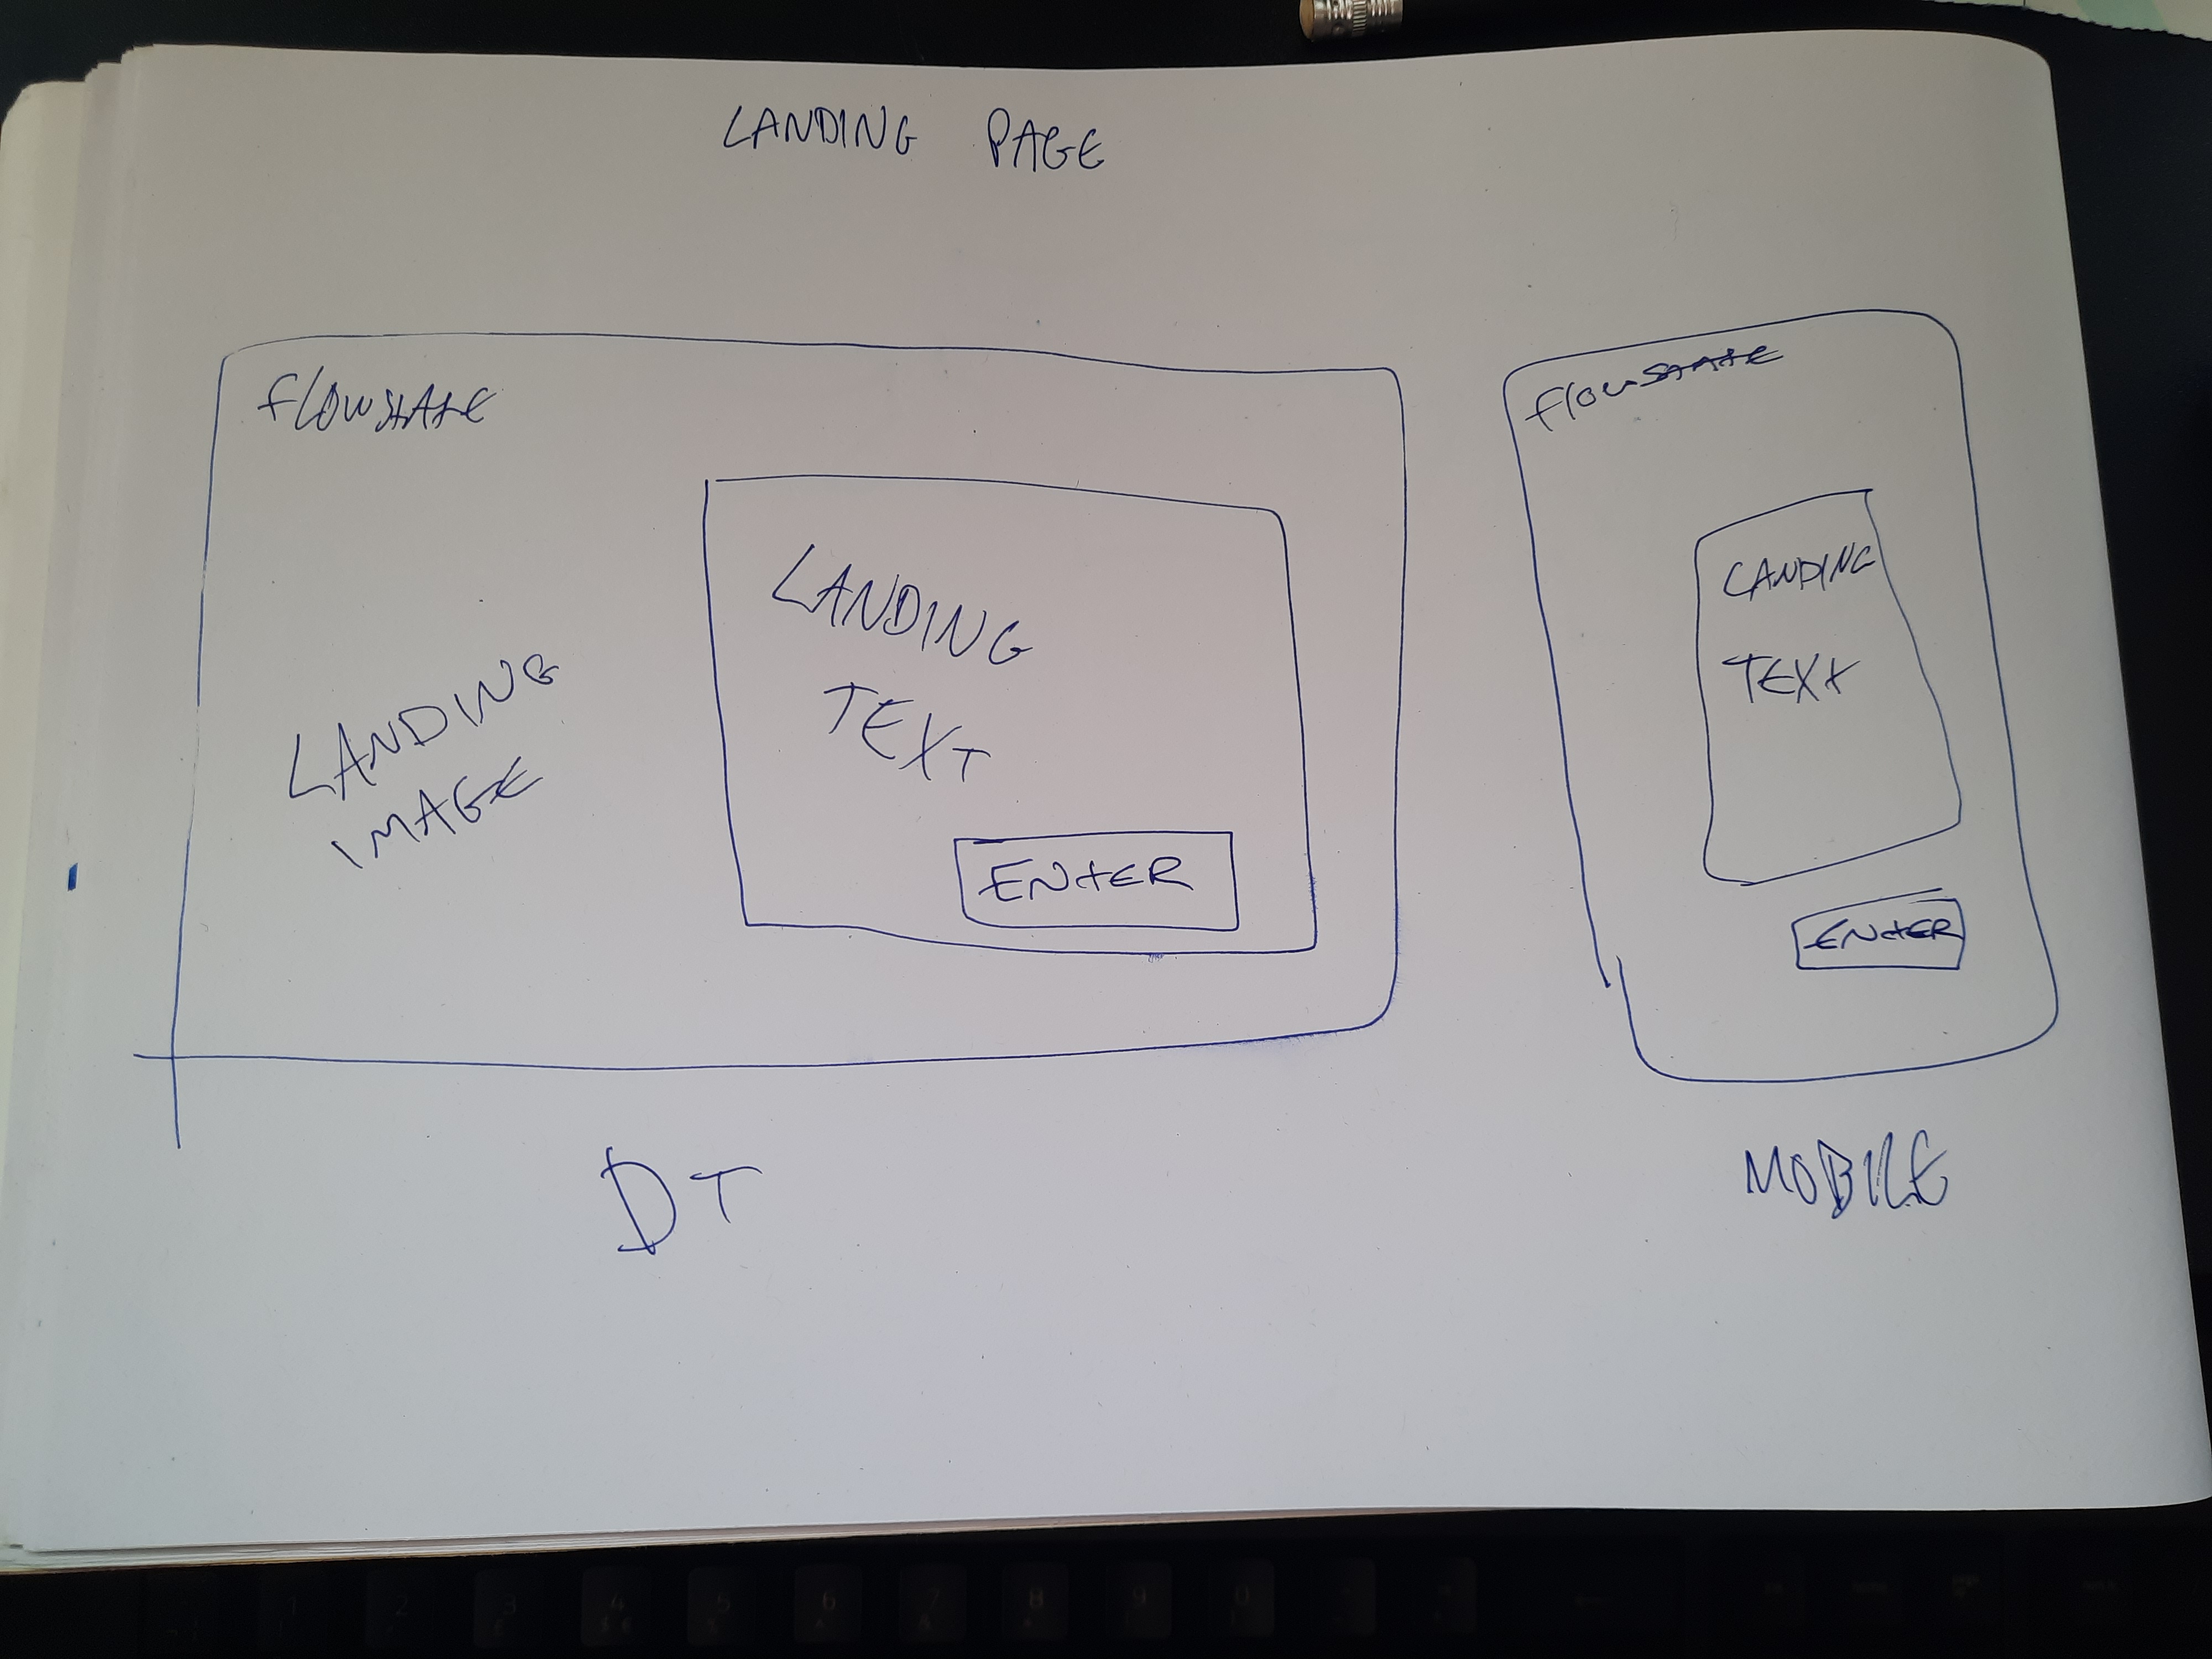 LANDING PAGE
flowstate
LANDING
IMAGE
LANDING
TEXT
ENTER
DT
flowstate
LANDING
TEXT
ENTER
MOBILE
1
2
3
4
5
6
7
8
9
0